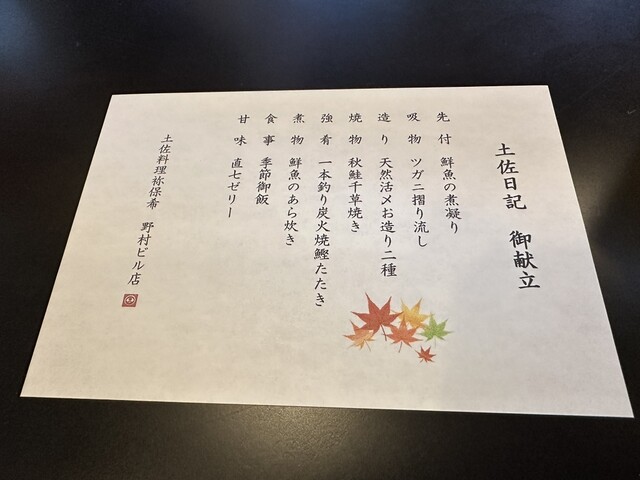 土佐日記　御献立
先付　鮮魚の煮凝り
吸物　ツガニ摺り流し
造り　天然活〆お造り二種
焼物　秋鮭千草焼き
強肴　一本釣り炭火焼鰹たたき
煮物　鮮魚のあら炊き
食事　季節御飯
甘味　直七ゼリー
土佐料理祢保希　野村ビル店